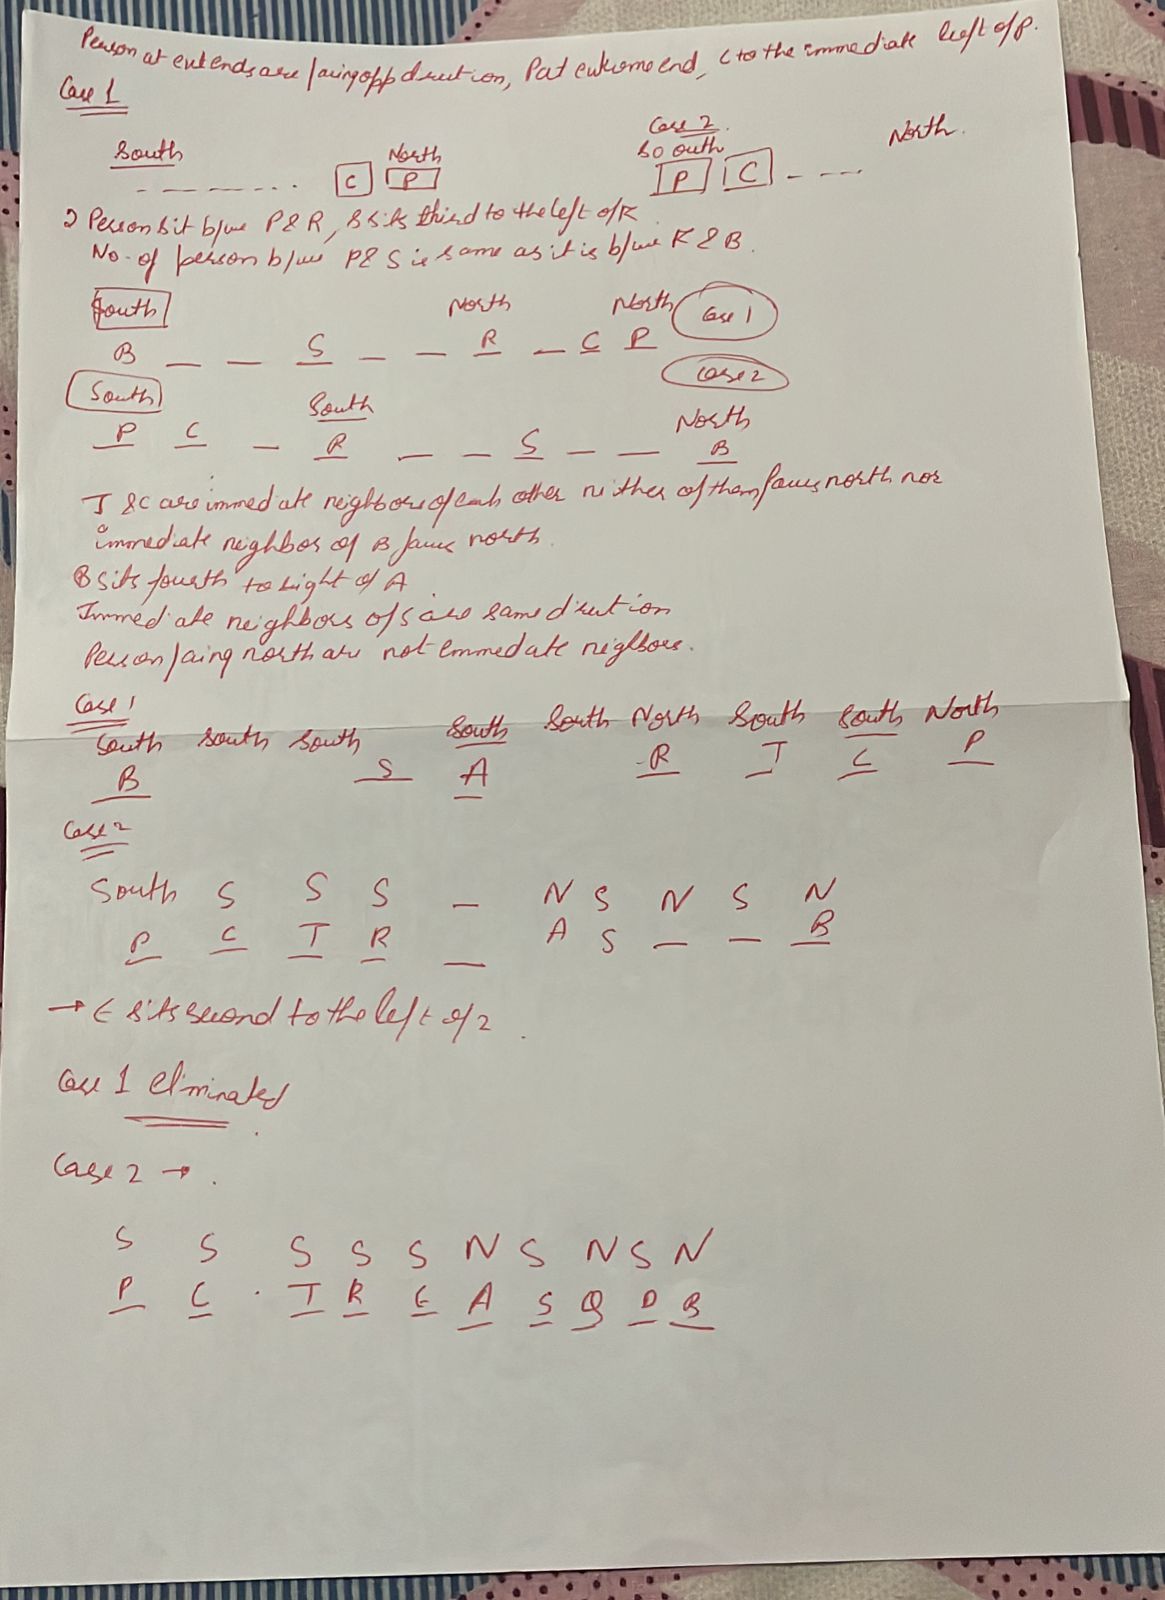 Person at ext ends are facing opp direction, P at extreme end, C to the immediate left of P.
Case 1
Case 2
South North
C P
South North
P C
2 Person sit b/w P & R, S sits third to the left of R
No. of person b/w P & S is same as it is b/w R & B.
South North North Case 1
B _ _ S _ _ R _ C P
Case 2
South South North
P C _ R _ _ S _ _ B
T & C are immediate neighbors of each other neither of them faces north nor
immediate neighbor of B faces north.
B sits fourth to right of A
Immediate neighbors of S are same direction
Person facing north are not immediate neighbors.
Case 1
South South South South South North South South North
B S A R T C P
Case 2
South S S S _ N S N S N
P C T R _ A S _ _ B
→ E sits second to the left of 2.
Case 1 eliminated
Case 2 → .
S S S S S N S N S N
P C . T R E A S Q D B